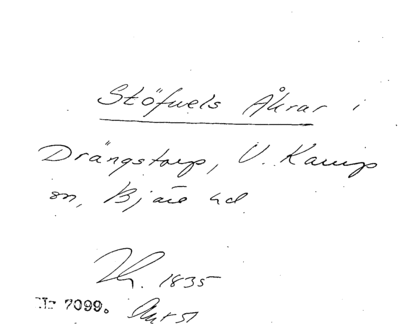 Stöfuels Åkrar i
Drängstorp, V. Karup
sn, Bjäre hd
1835
Nr 7099.